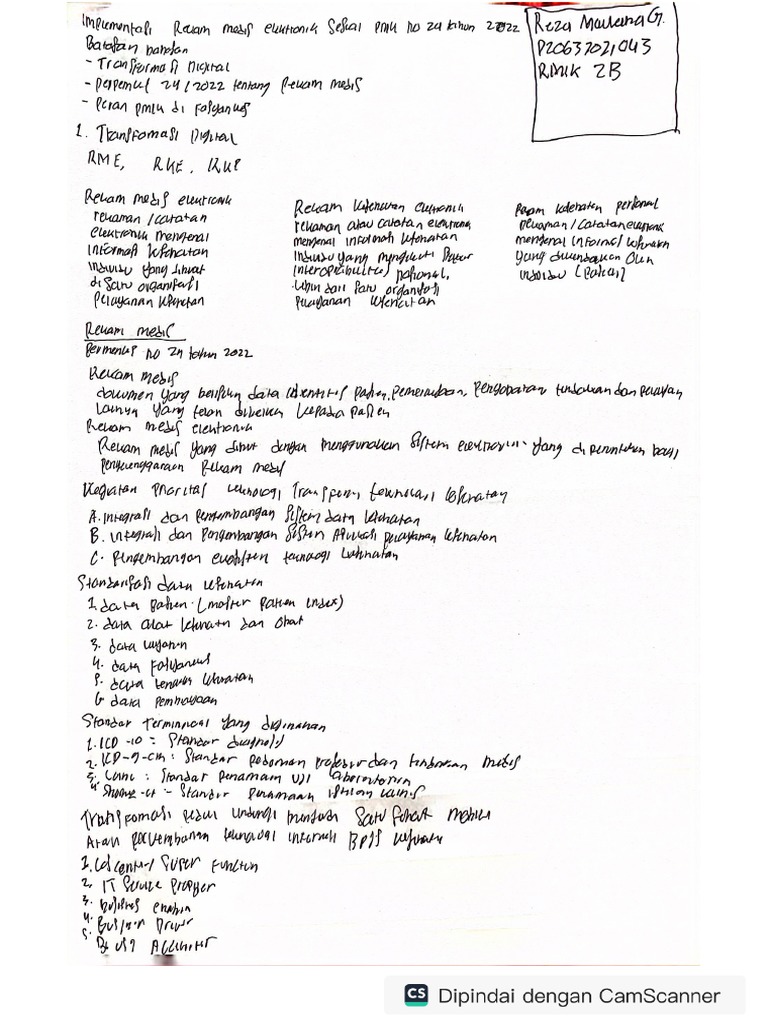 Implementasi Rekam medis elektronik Sesuai PMK no 24 tahun 2022
Reza Maulana G.
P20637021043
RMIK 2B
Batasan bahasan
- Transformasi Digital
- Perpemul 24/2022 tentang Rekam medis
- Peran PMIK di Fasyankes
1. Transfomasi Digital
RME, RKE, RKP
Rekam medis elektronik
rekaman / catatan
elektronik mengenai
informasi kesehatan
individu yang dibuat
di satu organisasi
pelayanan kesehatan
Rekam kesehatan elektronik
rekaman atau catatan elektronik
mengenai informasi kesehatan
individu yang mengikuti
nasional,
lebih dari satu organisasi
pelayanan kesehatan
Rekam kesehatan personal
rekaman / catatan elektronik
mengenai informasi kesehatan
yang dikendalikan oleh
individu (pasien)
Rekam medis
Permenkes no 24 tahun 2022
Rekam medis
dokumen yang berisikan data identitas pasien, pemeriksaan, pengobatan tindakan dan pelayan
lainnya yang telah diberikan kepada pasien
Rekam medis elektronik
Rekam medis yang dibuat dengan menggunakan sistem elektronik yang di peruntukan bagi
penyelenggaraan Rekam medis
Kegiatan prioritas teknologi kesehatan
A. Integrasi dan pengembangan sistem data kesehatan
B. Integrasi dan Pengembangan Sistem Aplikasi pelayanan kesehatan
C. Pengembangan ekosistem teknologi kesehatan
Standarisasi data kesehatan
1. data pasien (master Patien index)
2. data alat kesehatan dan obat
3. data layanan
4. data Fasyankes
5. data tenaga kesehatan
6 data pembiayaan
Standar Terminologi yang digunakan
1. ICD-10 = Standar diagnosis
2. ICD-9-cm : Standar pedoman prosedur dan tindakan medis
3. Loinc : Standar penamaan uji laboratorium
4. : Standar penamaan
Transformasi peduli lindungi menjadi Satu Sehat mobile
Arah pengembangan teknologi informasi BPJS kesehatan
1. Super Function
2. IT Service Provider
3. Business enabler
4. Business Driver
5.
Dipindai dengan CamScanner